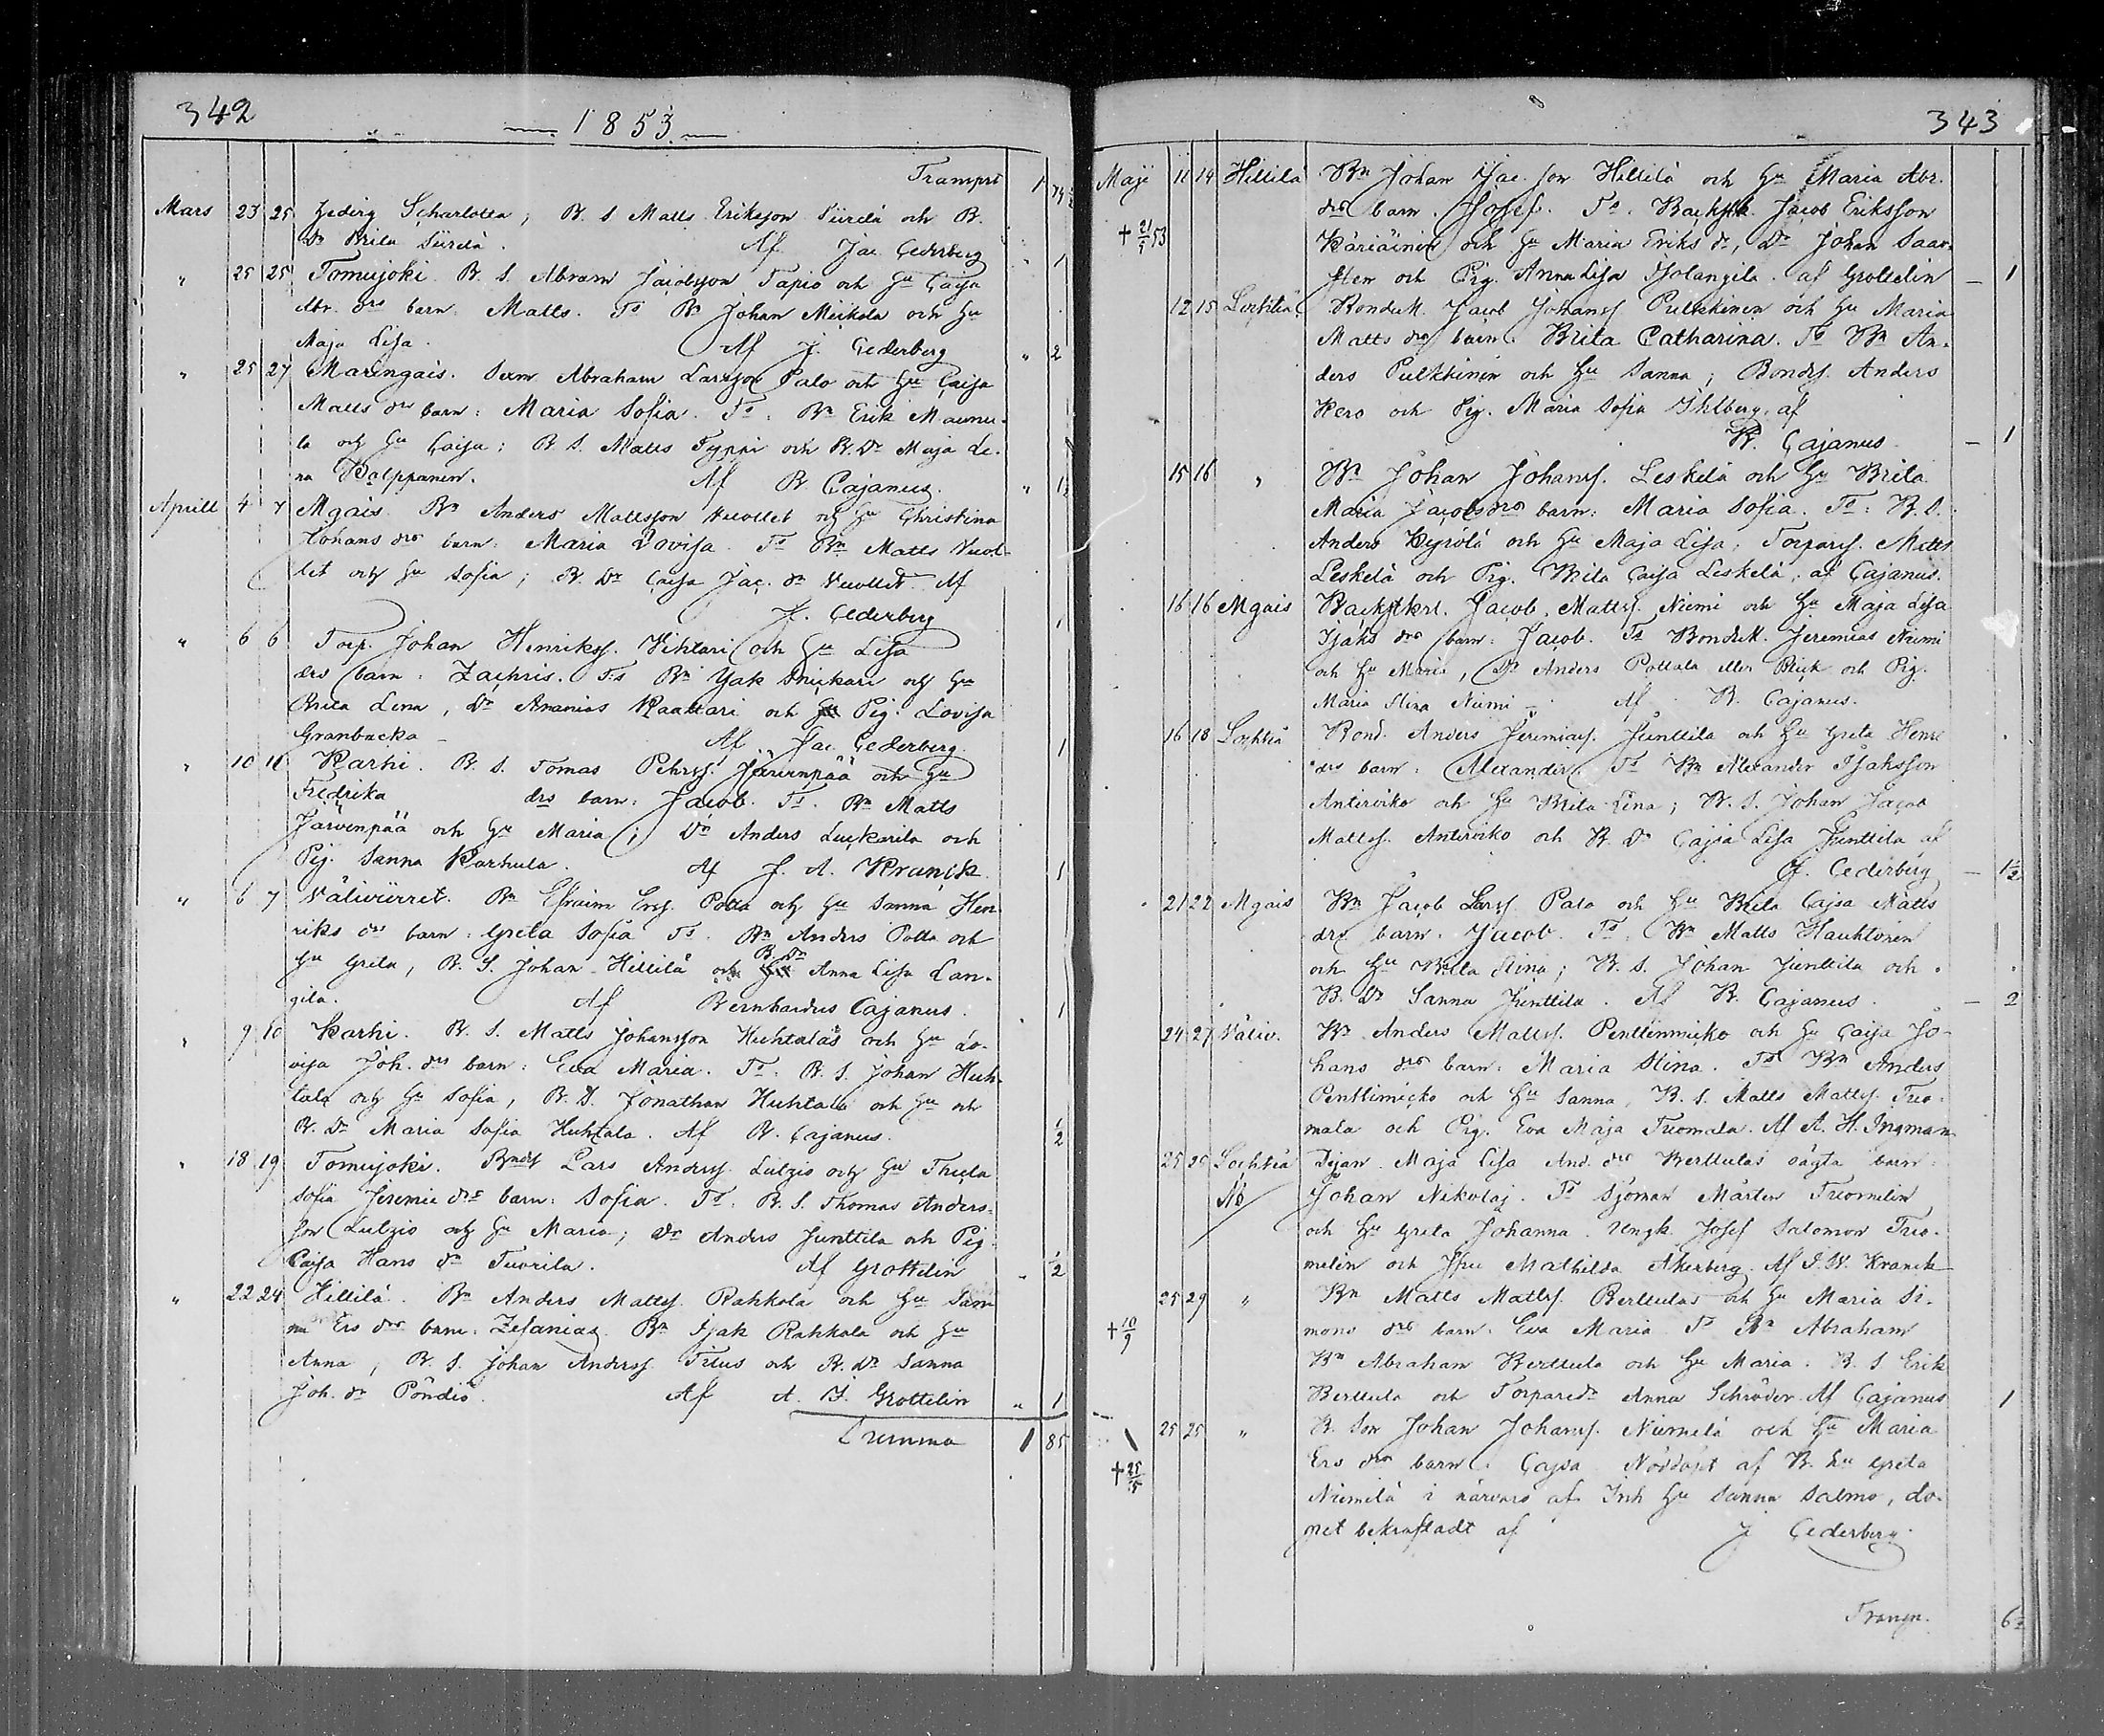 342
1853
Transprt 1 74½
Mars 23 25 Hedvig Scharlotta; B. S. Matts Eriksson Siirilä och B.
Dr Brita Siirilä. Af Jac. Cederberg " 1
" 25 25 Tomujoki. B. S. Abram Jacobsson Tapio och Hu Caisa
Abr. drs barn Matts. Ts Bn Johan Meikola och Hu
Maja Lisa. Af J. Cederberg " 2
" 25 27 Maringais. Sexm Abraham Larsson Palo och Hu Caisa
Matts drs barn: Maria Sofia. Ts: Bn Erik Maunu-
la och Hu Caisa; B. S. Matts Typpi och B. Dr Maja Le-
na Walppanen. Af B. Cajanus. " 1½
Aprill 4 7 Mgais. Bn Anders Mattsson Vuollet och Hu Christina
Johans drs barn: Maria Lovisa. Ts Bn Matts Vuol-
let och Hu Sofia; B. Dr Caisa Jac. dr Vuollet. Af
J. Cederberg 1
" 6 6 Torp. Johan Henrikss. Vihtari och Hu Lisa
drs barn: Zachris. Ts Bn Ysak Snickari och Hu
Brita Lena, Dr Ananias Raattari och Pig. Lovisa
Granbacka Af Jac. Cederberg. 1
" 10 11 Karhi. B. S. Tomas Pehrss. Järvenpää och Hu
Fredrika drs barn: Jacob. Ts. Bn Matts
Järvenpää och Hu Maria; Dr Anders Luckarila och
Pig. Sanna Karhula. Af J. A. Kranck. 1
" 6 7 Välivirret. Bn Efraim Erss. Potta och Hu Sanna Hen-
riks drs barn: Greta Sofia Ts. Bn Anders Potta och
Hu Greta, B. S. Johan Hillilä och B. Dr Anna Lisa Lan-
gila. Af Bernhardus Cajanus. 1
" 9 10 Karhi. B. S. Matts Johansson Huhtalas och Hu Lo-
visa Joh. drs barn: Eva Maria. Ts. B. S. Johan Huh-
tala och Hu Sofia, B. S. Jonathan Huhtala och Hu och
B. Dr Maria Sofia Huhtala. Af B. Cajanus. ½
" 18 19 Tomujoki. Bonds Lars Anderss. Lutzio och Hu Thecla
Sofia Jeremie drs barn: Sofia. Ts. B. S. Thomas Anders-
son Lutzio och Hu Maria; Dr Anders Junttila och Pig.
Caisa Hans dr Tuorila. Af Grottelin " ½
" 22 24 Hillilä. Bn Anders Mattss. Rahkola och Hu San-
na Ers drs barn: Zefanias. Bn Isak Rahkola och Hu
Anna, B. S. Johan Anderss. Titus och B. Dr Sanna
Joh. dr Pöndiö. Af A. I. Grottelin " 1
Summa 1 85
343
Maji 11 14 Hillilä Bn Johan Jac. son Hillilä och Hu Maria Abr.
drs barn. Josef. Ts. Backstk. Jacob Eriksson
† 21/5 53 Käriäinen och Hu Maria Eriks dr, Dr Johan Saar-
sten och Pig. Anna Lisa Isolangila af Grottelin — 1
12 15 Lochteå Bondem. Jacob Johanss Pulkkinen och Hu Maria
Matts drs barn: Brita Catharina. Ts Bn An-
ders Pulkkinen och Hu Sanna; Bonds. Anders
Kero och Pig. Maria Sofia Ihlberg. af
B. Cajanus. — 1
15 16 " Bn Johan Johanss. Leskelä och Hu Brita
Maria Jacobs drs barn: Maria Sofia. Ts: B. S.
Anders Kyrölä och Hu Maja Lisa; Torpars. Matts
Leskelä och Pig. Brita Caisa Leskelä, af Cajanus.
16 16 Mgais Backstkrl. Jacob Mattss. Niemi och Hu Maja Lisa
Isaks drs barn: Jacob. Ts Bondem. Jeremias Niemi
och Hu Maria, Dr Anders Pottala eller Blick och Pig.
Maria Stina Niemi. Af B. Cajanus.
16 18 Lochteå Bond. Anders Jeremiass. Junttila och Hu Greta Henr
drs barn: Alexander. Ts Bn Alexander Isaksson
Anteroiko och Hu Brita Lena; B. S. Johan Jacob
Mattss. Anteroiko och B. Dr Cajsa Lisa Junttila af
J. Cederberg — 1½
21 22 Mgais Bn Jacob Larss. Palo och Hu Brita Cajsa Matts
drs barn. Jacob. Ts. Bn Matts Hauktonen
och Hu Brita Stina; B. S. Johan Junttila och
B. Dr Sanna Junttila. Af B. Cajanus. — 2
24 27 Väliv. Bn Anders Mattss. Penttinmicko och Hu Caisa Jo-
hans drs barn: Maria Stina. Ts Bn Anders
Penttimicko och Hu Sanna, B. S. Matts Mattss. Tuo-
mala och Pig. Eva Maja Tuomala. Af A. H. Ingman
25 26 Lochteå Pijan. Maja Lisa And. drs Berttulas oägta barn:
No Johan Nikolaj. Ts Sjöman Mårten Tuomelin
och Hu Greta Johanna. Ungk. Josef Salomon Tuo-
melin och Jfru Mathilda Åkerberg. Af J. W. Kranck
25 29 " Bn Matts Mattss. Berttulas och Hu Maria Si-
† 10/9 mons drs barn. Eva Maria. Ts Bn Abraham
Bn Abraham Berttula och Hu Maria. B. S. Erik
Berttula och Torparedr Anna Schröder. Af Cajanus 1
25 25 " B. Son Johan Johanss. Niemelä och Hu Maria
† 25/5 Ers drs barn. Cajsa. Nöddöpt af B. hu Greta
Niemelä i närvaro af Inh Hu Sanna Salmo, do-
pet bekräftadt af J Cederberg
Transp. 6½